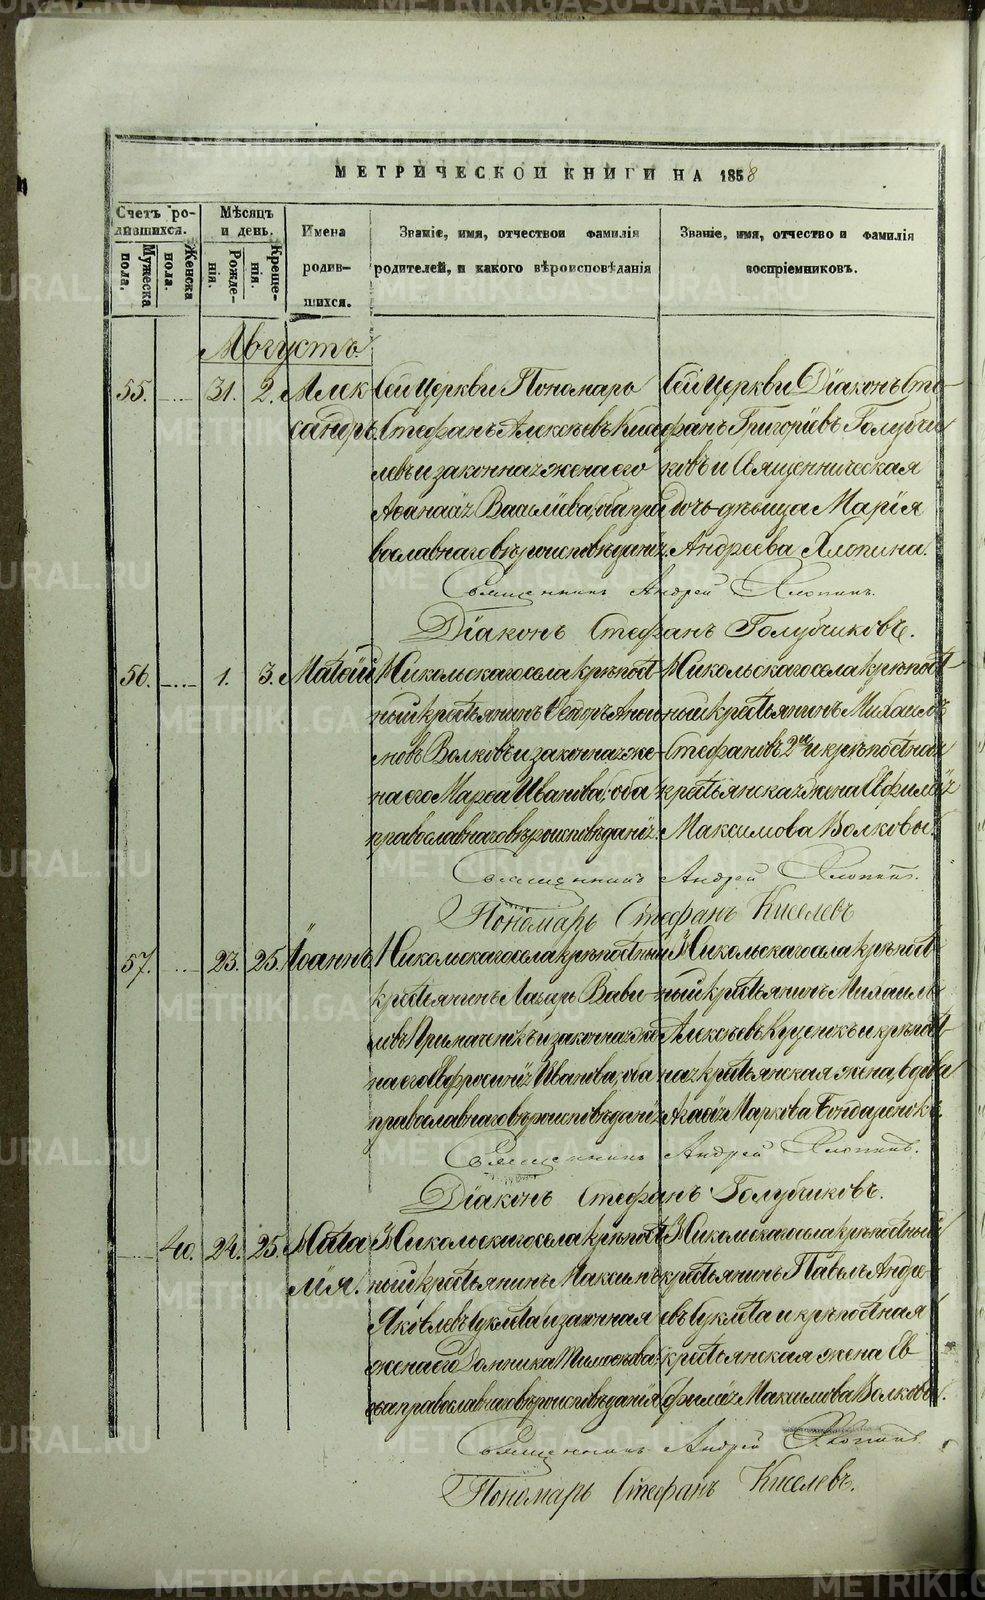 МЕТРИЧЕСКОЙ КНИГИ НА 1858
Счетъ ро-
дившихся.
Мужеска
пола.
Женска
пола.
Мѣсяцъ
и день.
Рожде-
нія.
Креще-
нія.
Имена
родив-
шихся.
Званіе, имя, отчество и фамилія
родителей, и какого вѣроисповѣданія
Званіе, имя, отчество и фамилія
воспріемниковъ.
Августъ.
55. 31. 2. Алек
сандръ
Сей Церкви Пономарь
Стефанъ Алексѣевъ Кисе
левъ и законная жена его
Аѳанасія Васильева, оба пра
вославнаго вѣроисповѣданія.
Сей Церкви Діаконъ Сте-
фанъ Григоріевъ Голубчи
ковъ и Священническая
дочь дѣвица Марія
Андреева Хлопина.
Священникъ Андрей Хлопинъ.
Діаконъ Стефанъ Голубчиковъ.
56. 1. 3. Матѳій
Никольскаго села крѣпост-
ный крестьянинъ Ѳедоръ
Волковъ и законная же-
на его Марѳа Иванова, оба
православнаго вѣроисповѣданія.
Никольскаго села крѣпост
ный крестьянинъ Михаилъ
Стефановъ 2й и крѣпостная
крестьянская жена Евфимія
Максимова Волковы.
Священникъ Андрей Хлопинъ.
Пономарь Стефанъ Киселевъ
57. 23. 25. Іоаннъ
Никольскаго села крѣпостный
крестьянинъ Лазарь Вави-
ловъ и законная же
на его Евфросинія Иванова, оба
православнаго вѣроисповѣданія
Никольскаго села крѣпост-
ный крестьянинъ Михаилъ
Алексѣевъ Куценкъ и крѣпост
ная крестьянская жена, вдова
Агаѳія Маркова Бондаренскъ.
Священникъ Андрей Хлопинъ.
Діаконъ Стефанъ Голубчиковъ.
40. 24. 25. Ната
лія.
Никольскаго села крѣпост
ный крестьянинъ Максимъ
Яковлевъ Буклета и законная
жена его Домника
оба православнаго вѣроисповѣданія
Никольскаго села крѣпостный
крестьянинъ Павелъ Андре-
евъ Буклета и крѣпостная
крестьянская жена Ев-
фимія Максимова Волкова.
Священникъ Андрей Хлопинъ.
Пономарь Стефанъ Киселевъ.
METRIKI.GASO-URAL.RU